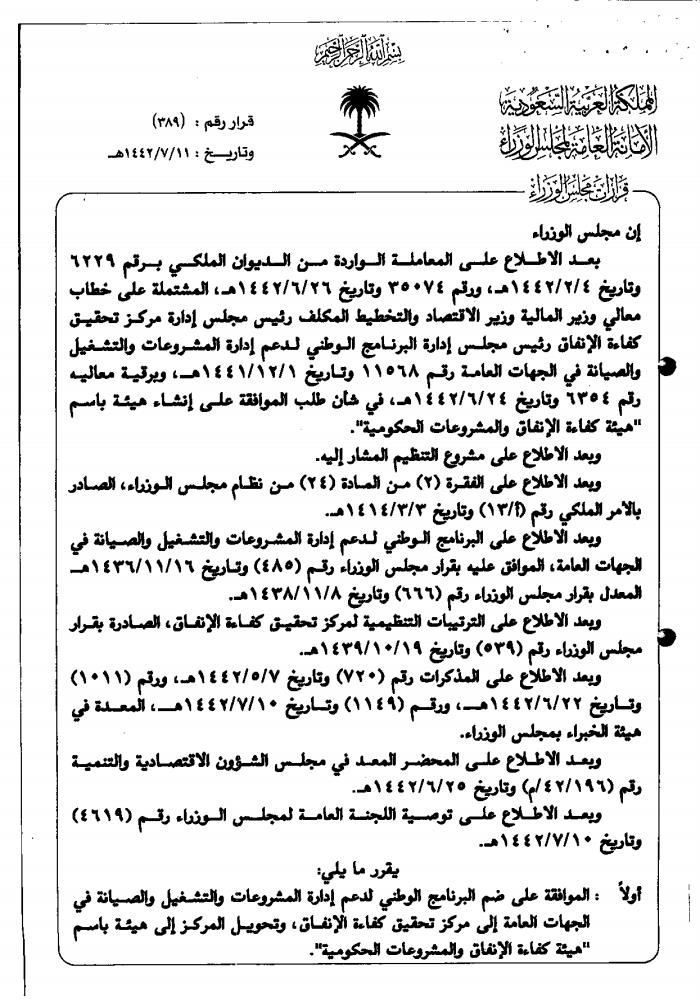 بسم الله الرحمن الرحيم
المملكة العربية السعودية
الأمانة العامة لمجلس الوزراء
قرار رقم : (٣٨٩)
وتاريخ : ١٤٤٢/٧/١١هـ
قرارات مجلس الوزراء
إن مجلس الوزراء
بعد الاطلاع على المعاملة الواردة من الديوان الملكي برقم ٦٢٢٩
وتاريخ ١٤٤٢/٢/٤هـ، ورقم ٣٥٠٧٤ وتاريخ ١٤٤٢/٦/٢٦هـ، المشتملة على خطاب
معالي وزير المالية وزير الاقتصاد والتخطيط المكلف رئيس مجلس إدارة مركز تحقيق
كفاءة الإنفاق رئيس مجلس إدارة البرنامج الوطني لدعم إدارة المشروعات والتشغيل
والصيانة في الجهات العامة رقم ١١٥٦٨ وتاريخ ١٤٤١/١٢/١هـ، وبرقية معاليه
رقم ٦٣٥٤ وتاريخ ١٤٤٢/٦/٢٤هـ، في شأن طلب الموافقة على إنشاء هيئة باسم
"هيئة كفاءة الإنفاق والمشروعات الحكومية".
وبعد الاطلاع على مشروع التنظيم المشار إليه.
وبعد الاطلاع على الفقرة (٢) من المادة (٢٤) من نظام مجلس الوزراء، الصادر
بالأمر الملكي رقم (أ/١٣) وتاريخ ١٤١٤/٣/٣هـ.
وبعد الاطلاع على البرنامج الوطني لدعم إدارة المشروعات والتشغيل والصيانة في
الجهات العامة، الموافق عليه بقرار مجلس الوزراء رقم (٤٨٥) وتاريخ ١٤٣٦/١١/١٦هـ
المعدل بقرار مجلس الوزراء رقم (٦٦٦) وتاريخ ١٤٣٨/١١/٨هـ.
وبعد الاطلاع على الترتيبات التنظيمية لمركز تحقيق كفاءة الإنفاق، الصادرة بقرار
مجلس الوزراء رقم (٥٣٩) وتاريخ ١٤٣٩/١٠/١٩هـ.
وبعد الاطلاع على المذكرات رقم (٧٢٠) وتاريخ ١٤٤٢/٥/٧هـ، ورقم (١٠١١)
وتاريخ ١٤٤٢/٦/٢٢هـ، ورقم (١١٤٩) وتاريخ ١٤٤٢/٧/١٠هـ، المعدة في
هيئة الخبراء بمجلس الوزراء.
وبعد الاطلاع على المحضر المعد في مجلس الشؤون الاقتصادية والتنمية
رقم (٤٢/١٩٦/م) وتاريخ ١٤٤٢/٦/٢٥هـ.
وبعد الاطلاع على توصية اللجنة العامة لمجلس الوزراء رقم (٤٦١٩)
وتاريخ ١٤٤٢/٧/١٠هـ.
يقرر ما يلي:
أولاً : الموافقة على ضم البرنامج الوطني لدعم إدارة المشروعات والتشغيل والصيانة في
الجهات العامة إلى مركز تحقيق كفاءة الإنفاق، وتحويل المركز إلى هيئة باسم
"هيئة كفاءة الإنفاق والمشروعات الحكومية".